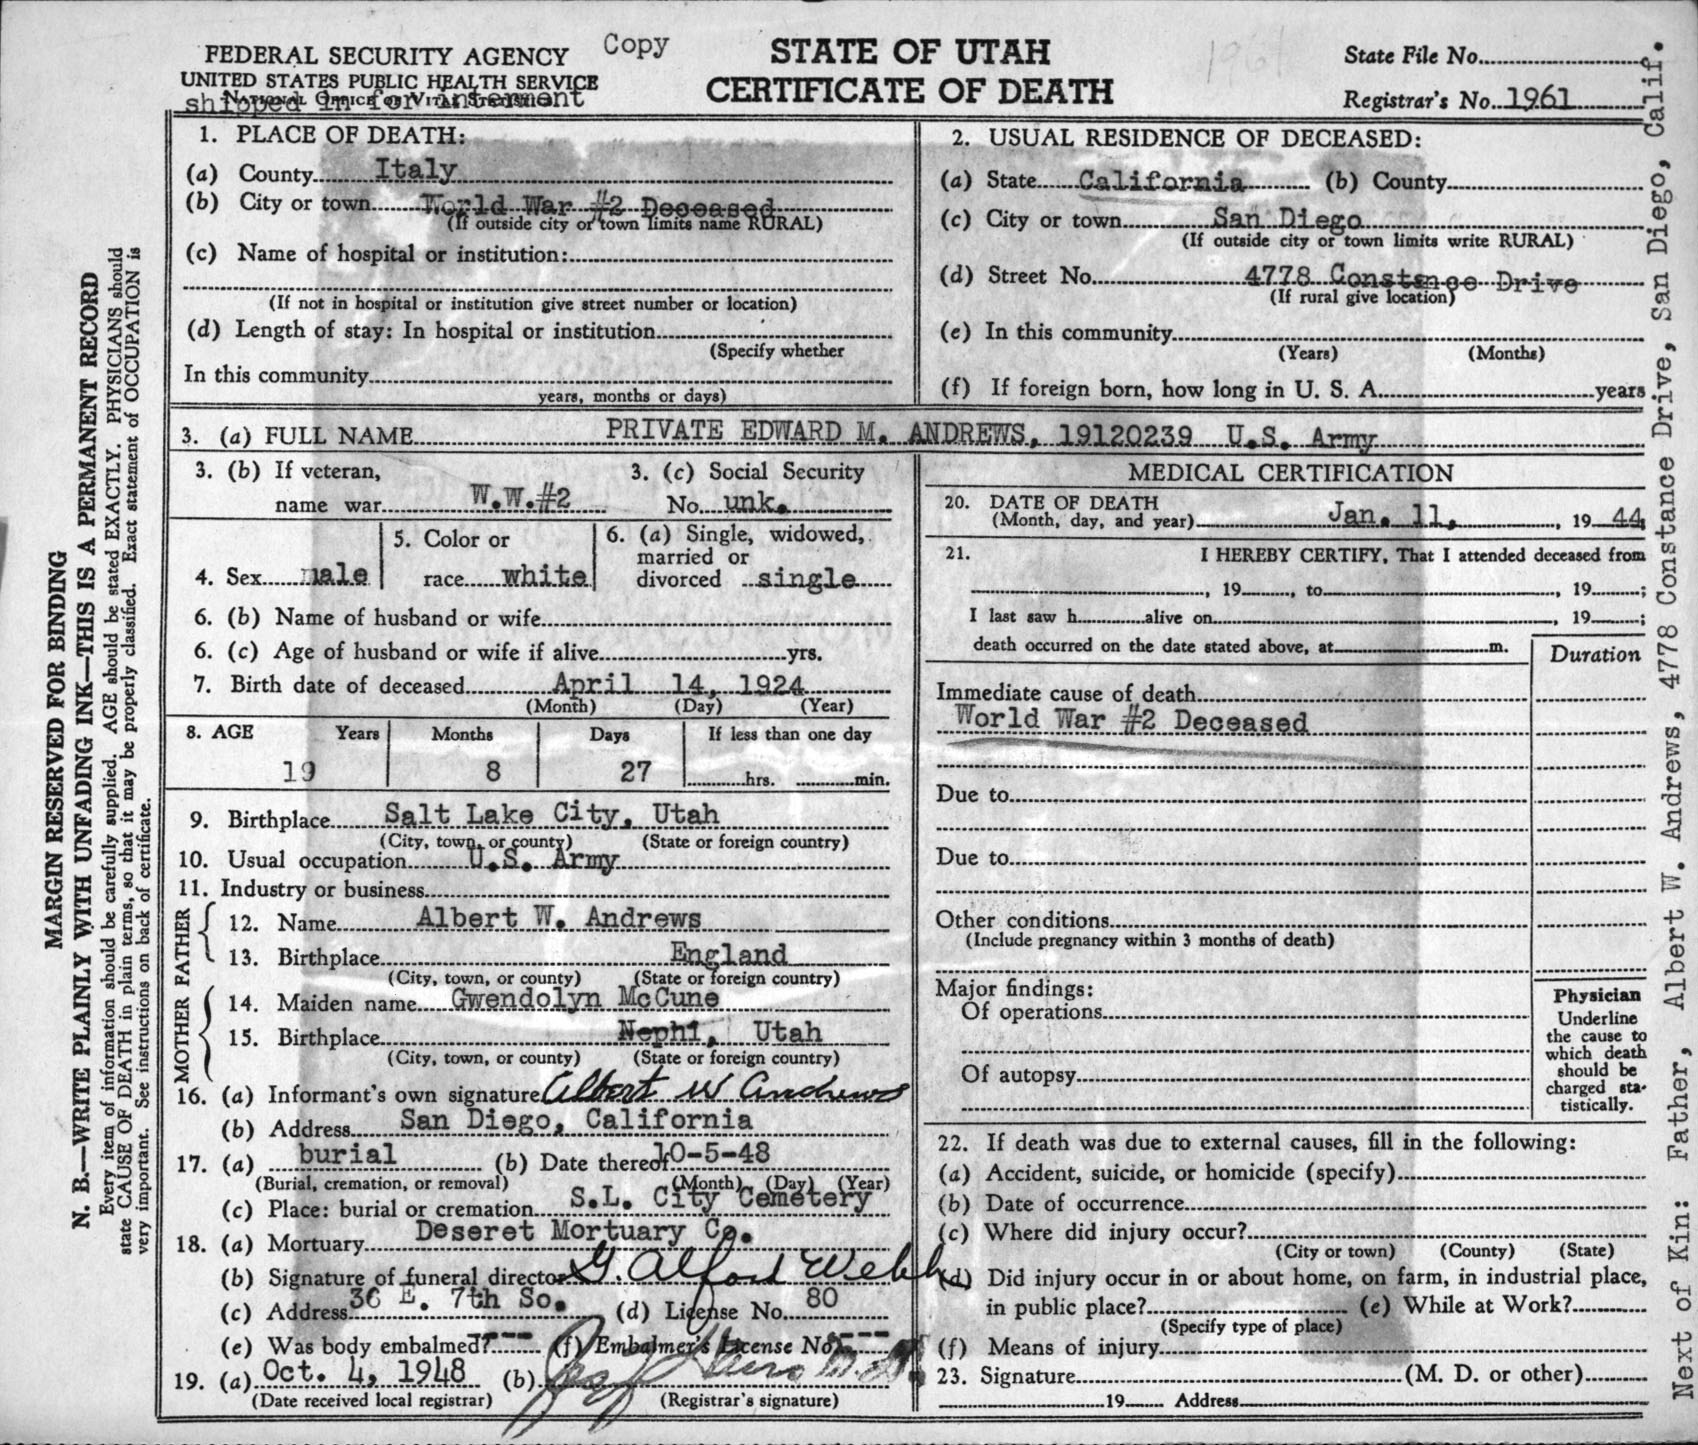 FEDERAL SECURITY AGENCY
UNITED STATES PUBLIC HEALTH SERVICE
NATIONAL OFFICE OF VITAL STATISTICS
Copy
shipped in for interment
STATE OF UTAH
CERTIFICATE OF DEATH
1961
State File No.
Registrar's No. 1961
MARGIN RESERVED FOR BINDING
N. B.—WRITE PLAINLY WITH UNFADING INK—THIS IS A PERMANENT RECORD
Every item of information should be carefully supplied. AGE should be stated EXACTLY. PHYSICIANS should
state CAUSE OF DEATH in plain terms, so that it may be properly classified. Exact statement of OCCUPATION is
very important. See instructions on back of certificate.
1. PLACE OF DEATH:
(a) County Italy
(b) City or town World War #2 Deceased
(If outside city or town limits name RURAL)
(c) Name of hospital or institution:
(If not in hospital or institution give street number or location)
(d) Length of stay: In hospital or institution
(Specify whether
In this community
years, months or days)
2. USUAL RESIDENCE OF DECEASED:
(a) State California (b) County
(c) City or town San Diego
(If outside city or town limits write RURAL)
(d) Street No. 4778 Constance Drive
(If rural give location)
(e) In this community
(Years) (Months)
(f) If foreign born, how long in U. S. A. years
3. (a) FULL NAME PRIVATE EDWARD M. ANDREWS, 19120239 U.S. Army
3. (b) If veteran,
name war W.W.#2
3. (c) Social Security
No. unk.
4. Sex male
5. Color or
race white
6. (a) Single, widowed,
married or
divorced single
6. (b) Name of husband or wife
6. (c) Age of husband or wife if alive yrs.
7. Birth date of deceased April 14, 1924
(Month) (Day) (Year)
8. AGE Years Months Days If less than one day
19 8 27 hrs. min.
9. Birthplace Salt Lake City, Utah
(City, town, or county) (State or foreign country)
10. Usual occupation U.S. Army
11. Industry or business
FATHER
12. Name Albert W. Andrews
13. Birthplace England
(City, town, or county) (State or foreign country)
MOTHER
14. Maiden name Gwendolyn McCune
15. Birthplace Nephi, Utah
(City, town, or county) (State or foreign country)
16. (a) Informant's own signature Albert W Andrews
(b) Address San Diego, California
17. (a) burial (b) Date thereof 10-5-48
(Burial, cremation, or removal) (Month) (Day) (Year)
(c) Place: burial or cremation S.L. City Cemetery
18. (a) Mortuary Deseret Mortuary Co.
(b) Signature of funeral director G. Alford Webb
(c) Address 36 E. 7th So. (d) License No. 80
(e) Was body embalmed? --- (f) Embalmer's License No. ---
19. (a) Oct. 4, 1948 (b)
(Date received local registrar) (Registrar's signature)
MEDICAL CERTIFICATION
20. DATE OF DEATH
(Month, day, and year) Jan. 11, , 19 44
21. I HEREBY CERTIFY, That I attended deceased from
, 19 , to , 19 ;
I last saw h alive on , 19 ;
death occurred on the date stated above, at m.
Duration
Immediate cause of death
World War #2 Deceased
Due to
Due to
Other conditions
(Include pregnancy within 3 months of death)
Major findings:
Of operations
Of autopsy
Physician
Underline
the cause to
which death
should be
charged sta-
tistically.
22. If death was due to external causes, fill in the following:
(a) Accident, suicide, or homicide (specify)
(b) Date of occurrence
(c) Where did injury occur?
(City or town) (County) (State)
(d) Did injury occur in or about home, on farm, in industrial place,
in public place? (e) While at Work?
(Specify type of place)
(f) Means of injury
23. Signature (M. D. or other)
19 Address
Next of Kin: Father, Albert W. Andrews, 4778 Constance Drive, San Diego, Calif.